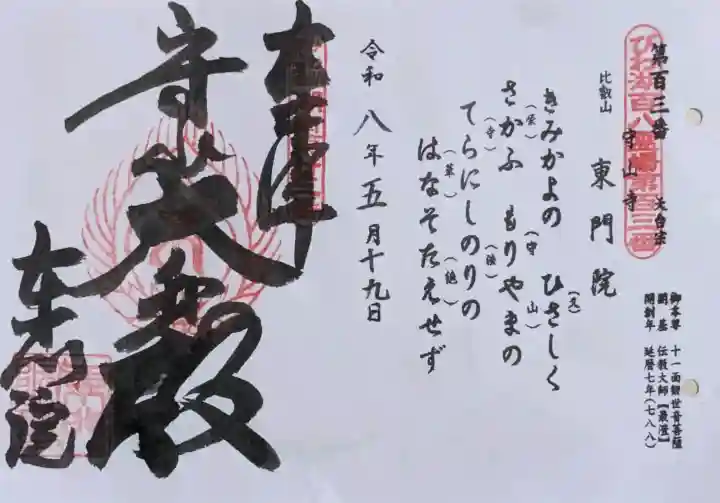 びわ湖百八霊場第百三番
第百三番　天台宗
守山寺
比叡山　東門院
御本尊　十一面観世音菩薩
開基　伝教大師【最澄】
開創年　延暦七年(七八八)
きみかよの　ひさしく(久)
さかふ(栄)　もりやまの(守山)
てらにしのりの(寺)(法)
はなそたえせず(華)(絶)
令和八年五月十九日
東門院